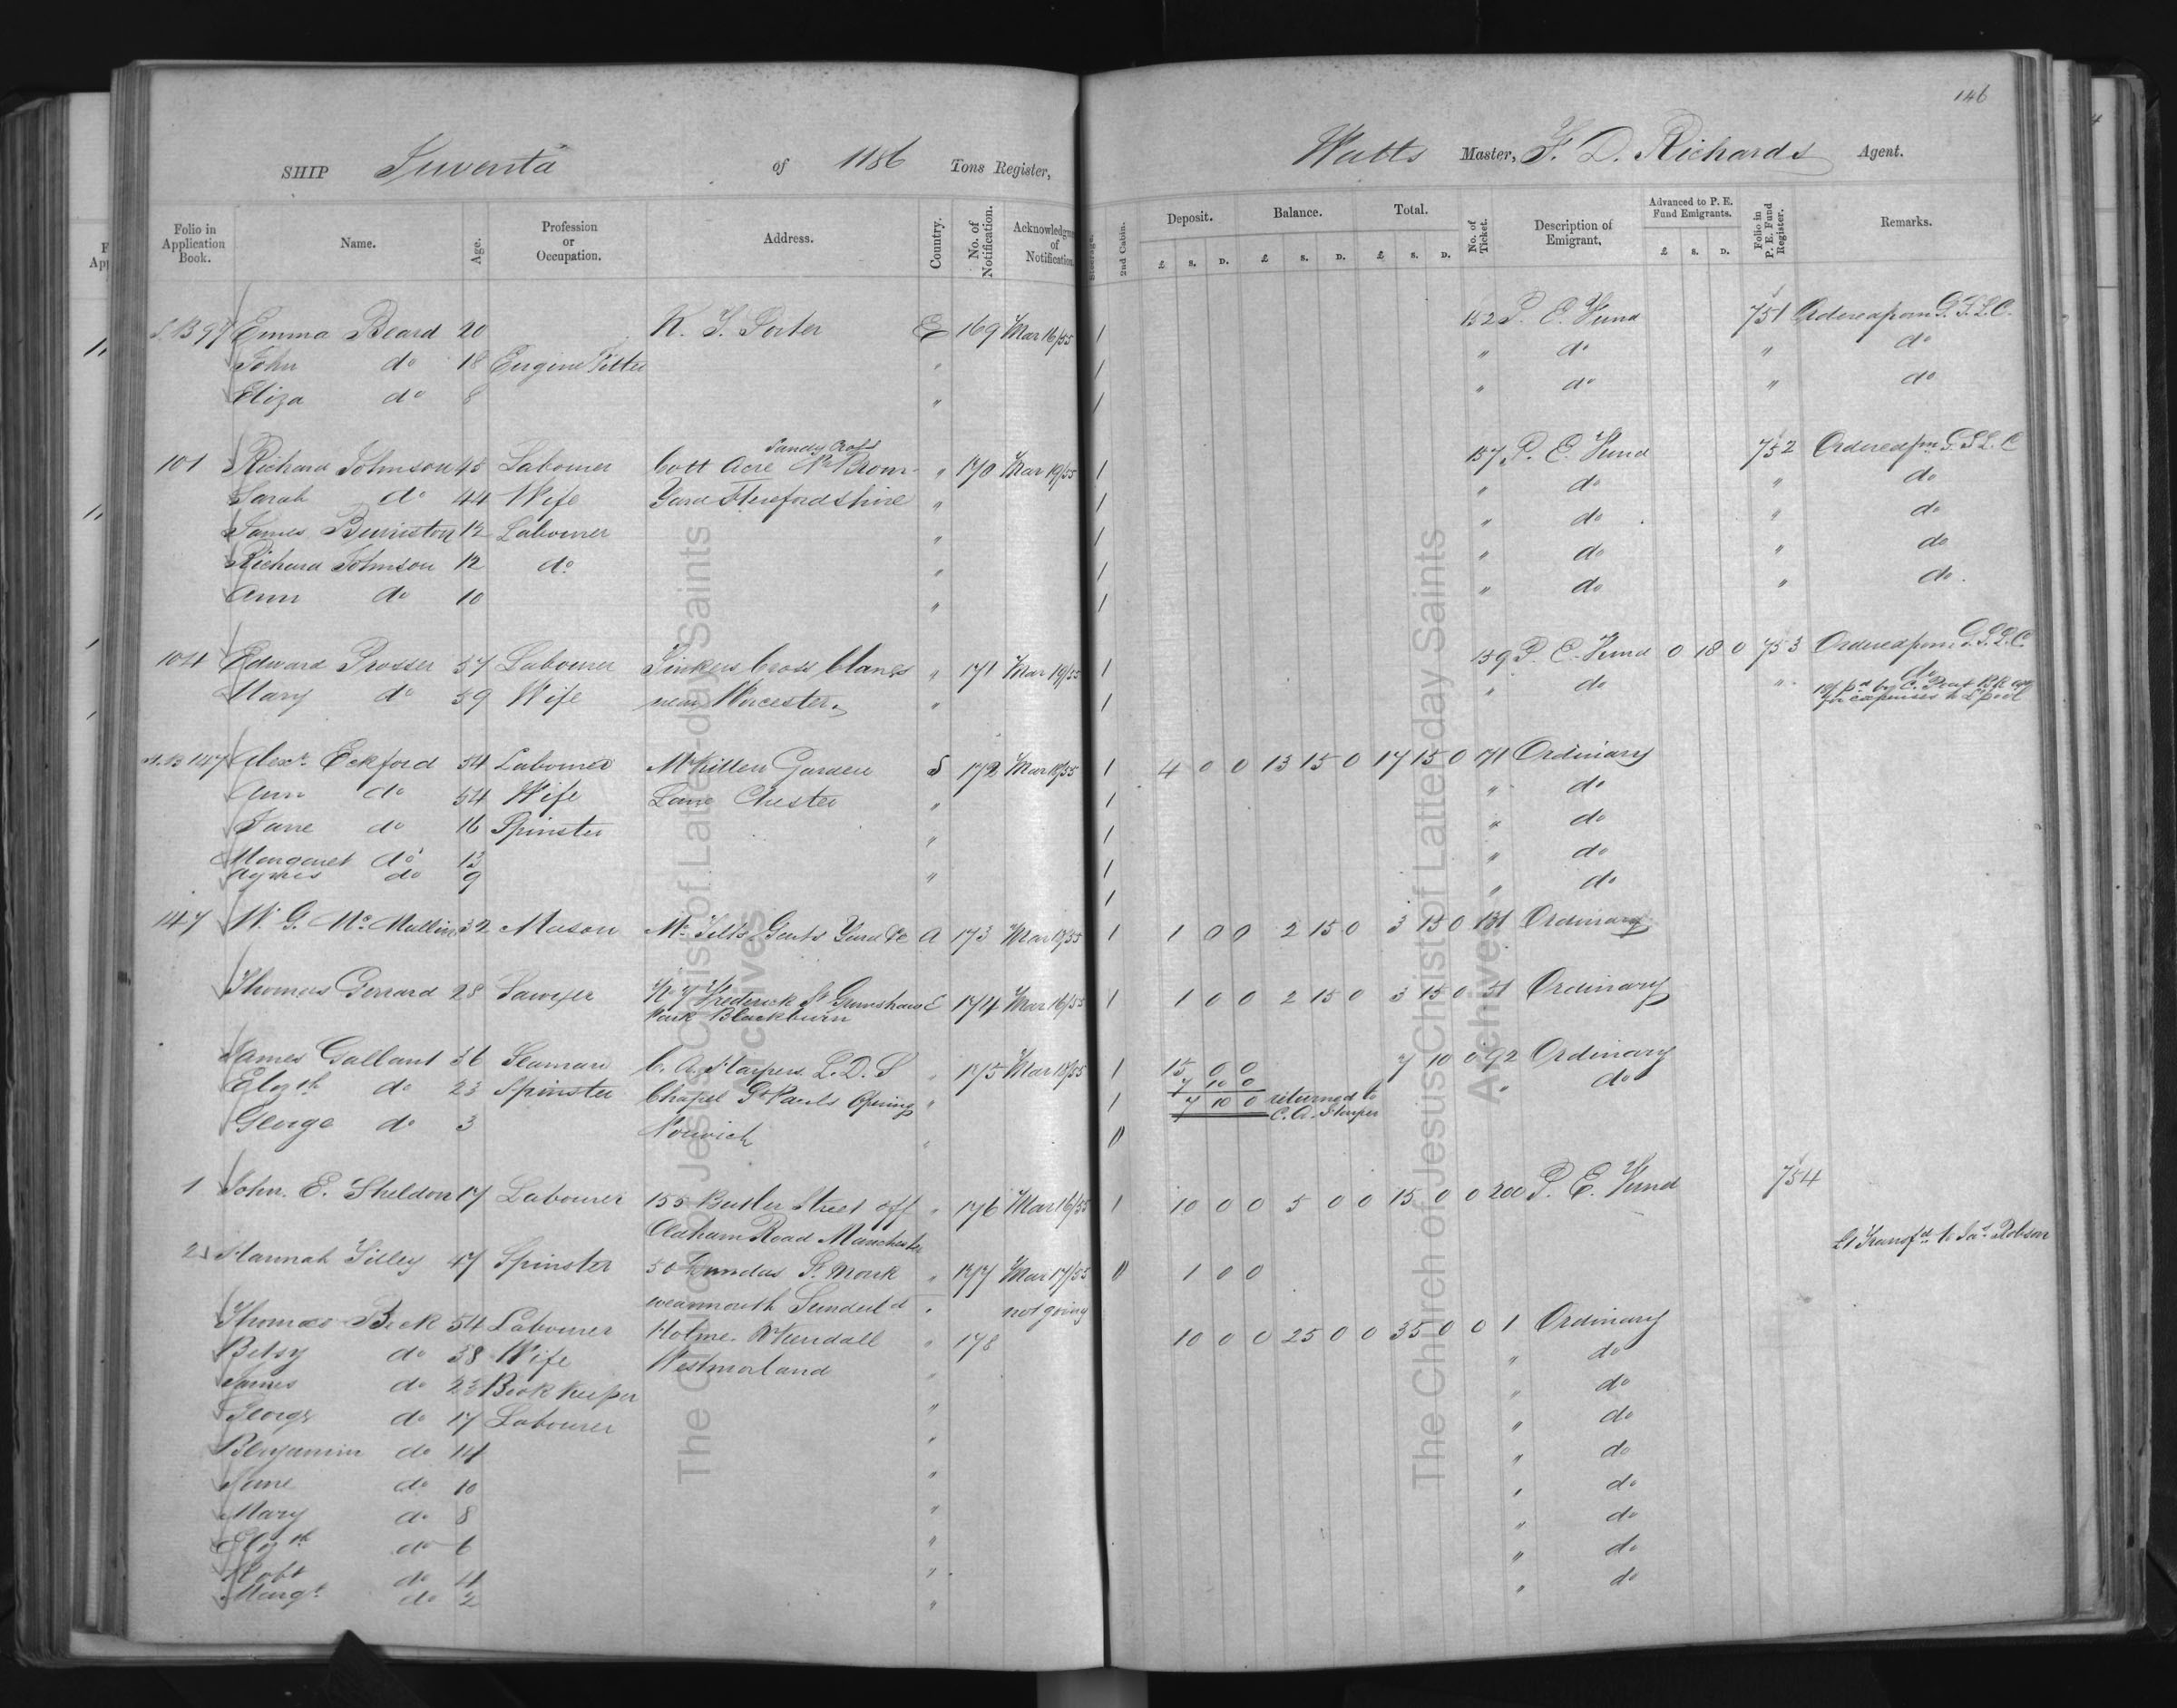 146
SHIP Juventa of 1186 Tons Register, Watts Master, F. D. Richards Agent.
Folio in Application Book. Name. Age. Profession or Occupation. Address. Country. No. of Notification. Acknowledgm of Notification Steerage. 2nd Cabin. Deposit. £ S. D. Balance. £ S. D. Total. £ S. D. No. of Ticket. Description of Emigrant. Advanced to P. E. Fund Emigrants. £ S. D. Folio in P. E. Fund Register. Remarks.
S.B 97 Emma Beard 20 K. S. Porter E 169 Mar 16/55 1 152 P. E. Fund 751 Ordered from G.S.L.C.
John do 18 Engine Fitter " 1 " do " do
Eliza do 8 " 1 " do " do
Sandy Croft
101 Richard Johnson 45 Labourer Cott Acre Nr Brom- " 170 Mar 19/55 1 157 P. E. Fund 752 Ordered fm G.S.L.C
Sarah do 44 Wife Yard Herefordshire " 1 " do " do
James Burriston 12 Labourer " 1 " do " do
Richard Johnson 12 do " 1 " do " do
Ann do 10 " 1 " do " do.
104 Edward Prosser 57 Labourer Tinkers Cross Claines " 171 Mar 19/55 1 159 P. E. Fund 0 18 0 753 Ordered from G.S.L.C.
Mary do 59 Wife near Worcester " 1 " do " do
18/ pd by C. Pent RR
for expenses to L'pool
147 Alexr. Eckford 54 Labourer McKillen Garden S 172 Mar 19/55 1 4 0 0 13 15 0 17 15 0 171 Ordinary
Ann do 54 Wife Lane Chester " 1 " do
Jane do 16 Spinster " 1 " do
Margaret do 13 1 " do
Agnes do 9 " 1 " do
147 W. G. McMullin 32 Mason Mr Tells Gents Yard &c A 173 Mar 19/55 1 1 0 0 2 15 0 3 15 0 131 Ordinary
Thomas Gerrard 28 Sawyer No 7 Frederick St Grimshaw E 174 Mar 16/55 1 1 0 0 2 15 0 3 15 0 51 Ordinary
Park Blackburn
James Gallant 36 Seaman C. A. Harpers L.D.S " 175 Mar 18/55 1 15 0 0 7 10 0 92 Ordinary
7 10 0
Elizth do 23 Spinster Chapel St Pauls Opening " 1 7 10 0 returned to C. A. Harper " do
George do 3 Norwich "
1 John. E. Sheldon 17 Labourer 155 Butler Street off " 176 Mar 16/55 1 10 0 0 5 0 0 15 0 0 200 P. E. Fund 754
Oldham Road Manchester
2 Hannah Tilley 47 Spinster 50 Dundas St. Monk " 177 Mar 17/55 1 0 0 £1 Transfd to Jas Robson
wearmouth Sunderld " not going
Thomas Beck 54 Labourer Holme Nr Kendall " 178 10 0 0 25 0 0 35 0 0 1 Ordinary
Betsy do 38 Wife Westmorland " " do
James do 23 Book keeper " " do
George do 17 Labourer " " do
Benjamin do 14 " " do
Jane do 10 " " do
Mary do 8 " " do
Elizth do 6 " " do
Robt do 4 " " do
Margt do 2 "
The Church of Jesus Christ of Latter-day Saints
Archives
The Church of Jesus Christ of Latter-day Saints
Archives